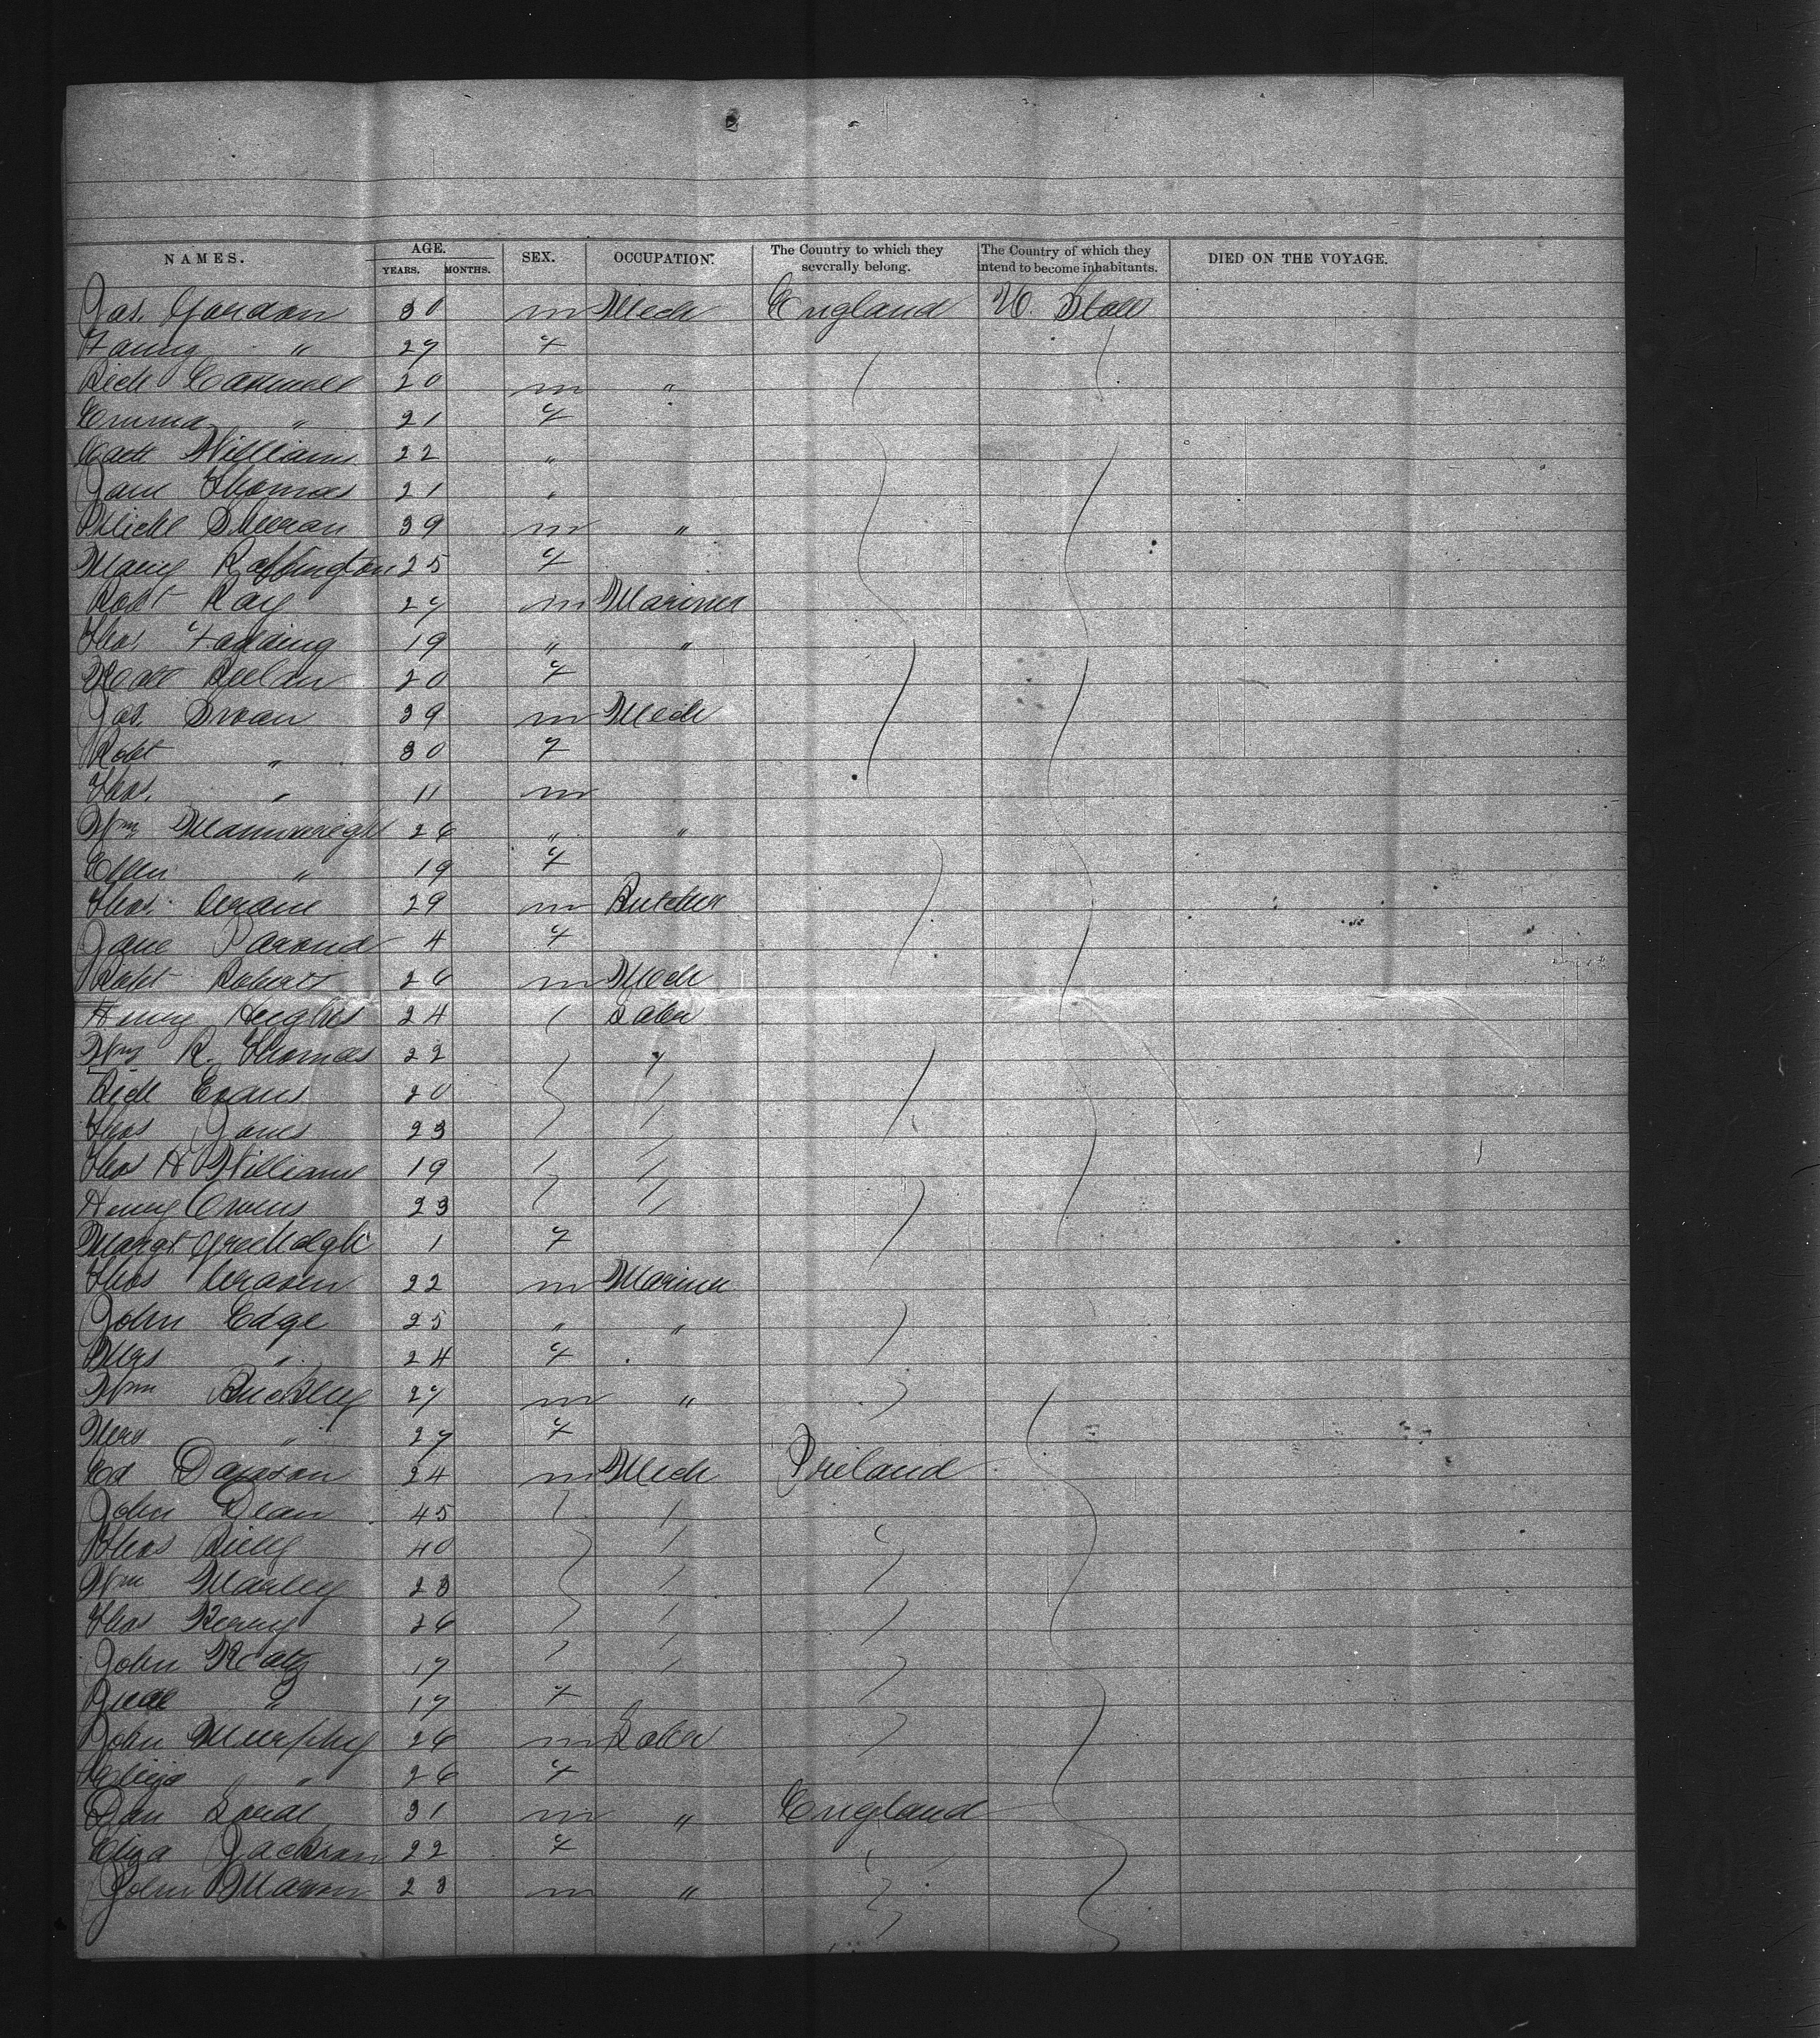 NAMES. AGE. YEARS. MONTHS. SEX. OCCUPATION. The Country to which they severally belong. The Country of which they intend to become inhabitants. DIED ON THE VOYAGE.
Jas. Gordon 30 m Mech England U. States
Fanny " 27 f
Rich 20 m "
Emma " 21 f
Cath Williams 22 "
Jane Thomas 21 "
Michl 39 m "
Mary Raffington 25 f
Robt Ray 27 m Mariner
Thos. 19 " "
20 f
Jas. Swan 39 m Mech
Robt " 30 f
Thos. " 11 m
Wm Mannwright 26 " "
Ellen " 19 f
Thos. 29 m Butcher
Jane 4 f
Robt Roberts 26 m Mech
Henry Hughes 24 Labor
Wm R. Thomas 22 "
Rich Evans 20
Thos Jones 23
Thos H Williams 19
Henry Owens 23
Margt 1 f
Thos 22 m Mariner
John Edge 25 " "
Mrs " 24 f
Wm Buckley 27 m "
Mrs " 27 f
Ed Dawson 24 m Mech Ireland
John Dean 45
Thos 40
Wm 23
Thos 26
John 17
" 17 f
John Murphy 26 m Labor
" 26 f
Dan 31 m " England
Eliza Jackson 22 f
John 23 m "